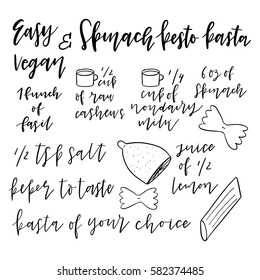 Easy & Spinach pesto pasta
vegan
1 bunch
of
basil
1/2
cup
of raw
cashews
1/4
cup of
nondairy
milk
6 oz of
spinach
1/2 tsp salt
juice
of 1/2
lemon
peper to taste
pasta of your choice
shutterstock.com · 582374485